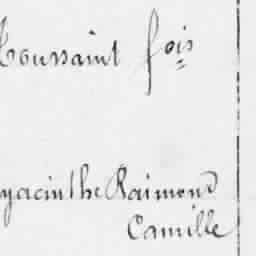 Toussaint fois
yacinthe Raimond
Camille